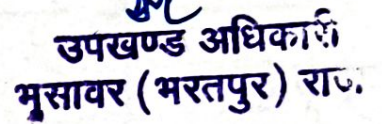 उपखण्ड अधिकारी
भुसावर (भरतपुर) राज.